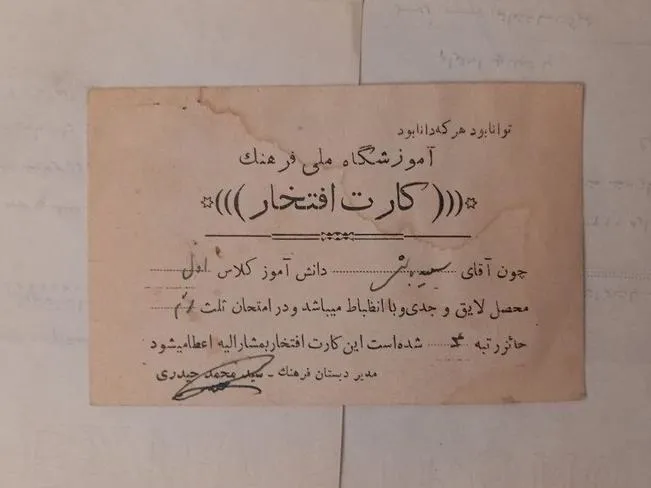 توانا بود هر که دانا بود
آموزشگاه ملی فرهنك
☆(((کارت افتخار)))☆
چون آقای دانش آموز کلاس اول
محصل لایق و جدی و با انظباط میباشد و در امتحان ثلث
حائز رتبه شده است این کارت افتخار بمشارالیه اعطا میشود
مدیر دبستان فرهنك ـ سید محمد حیدری